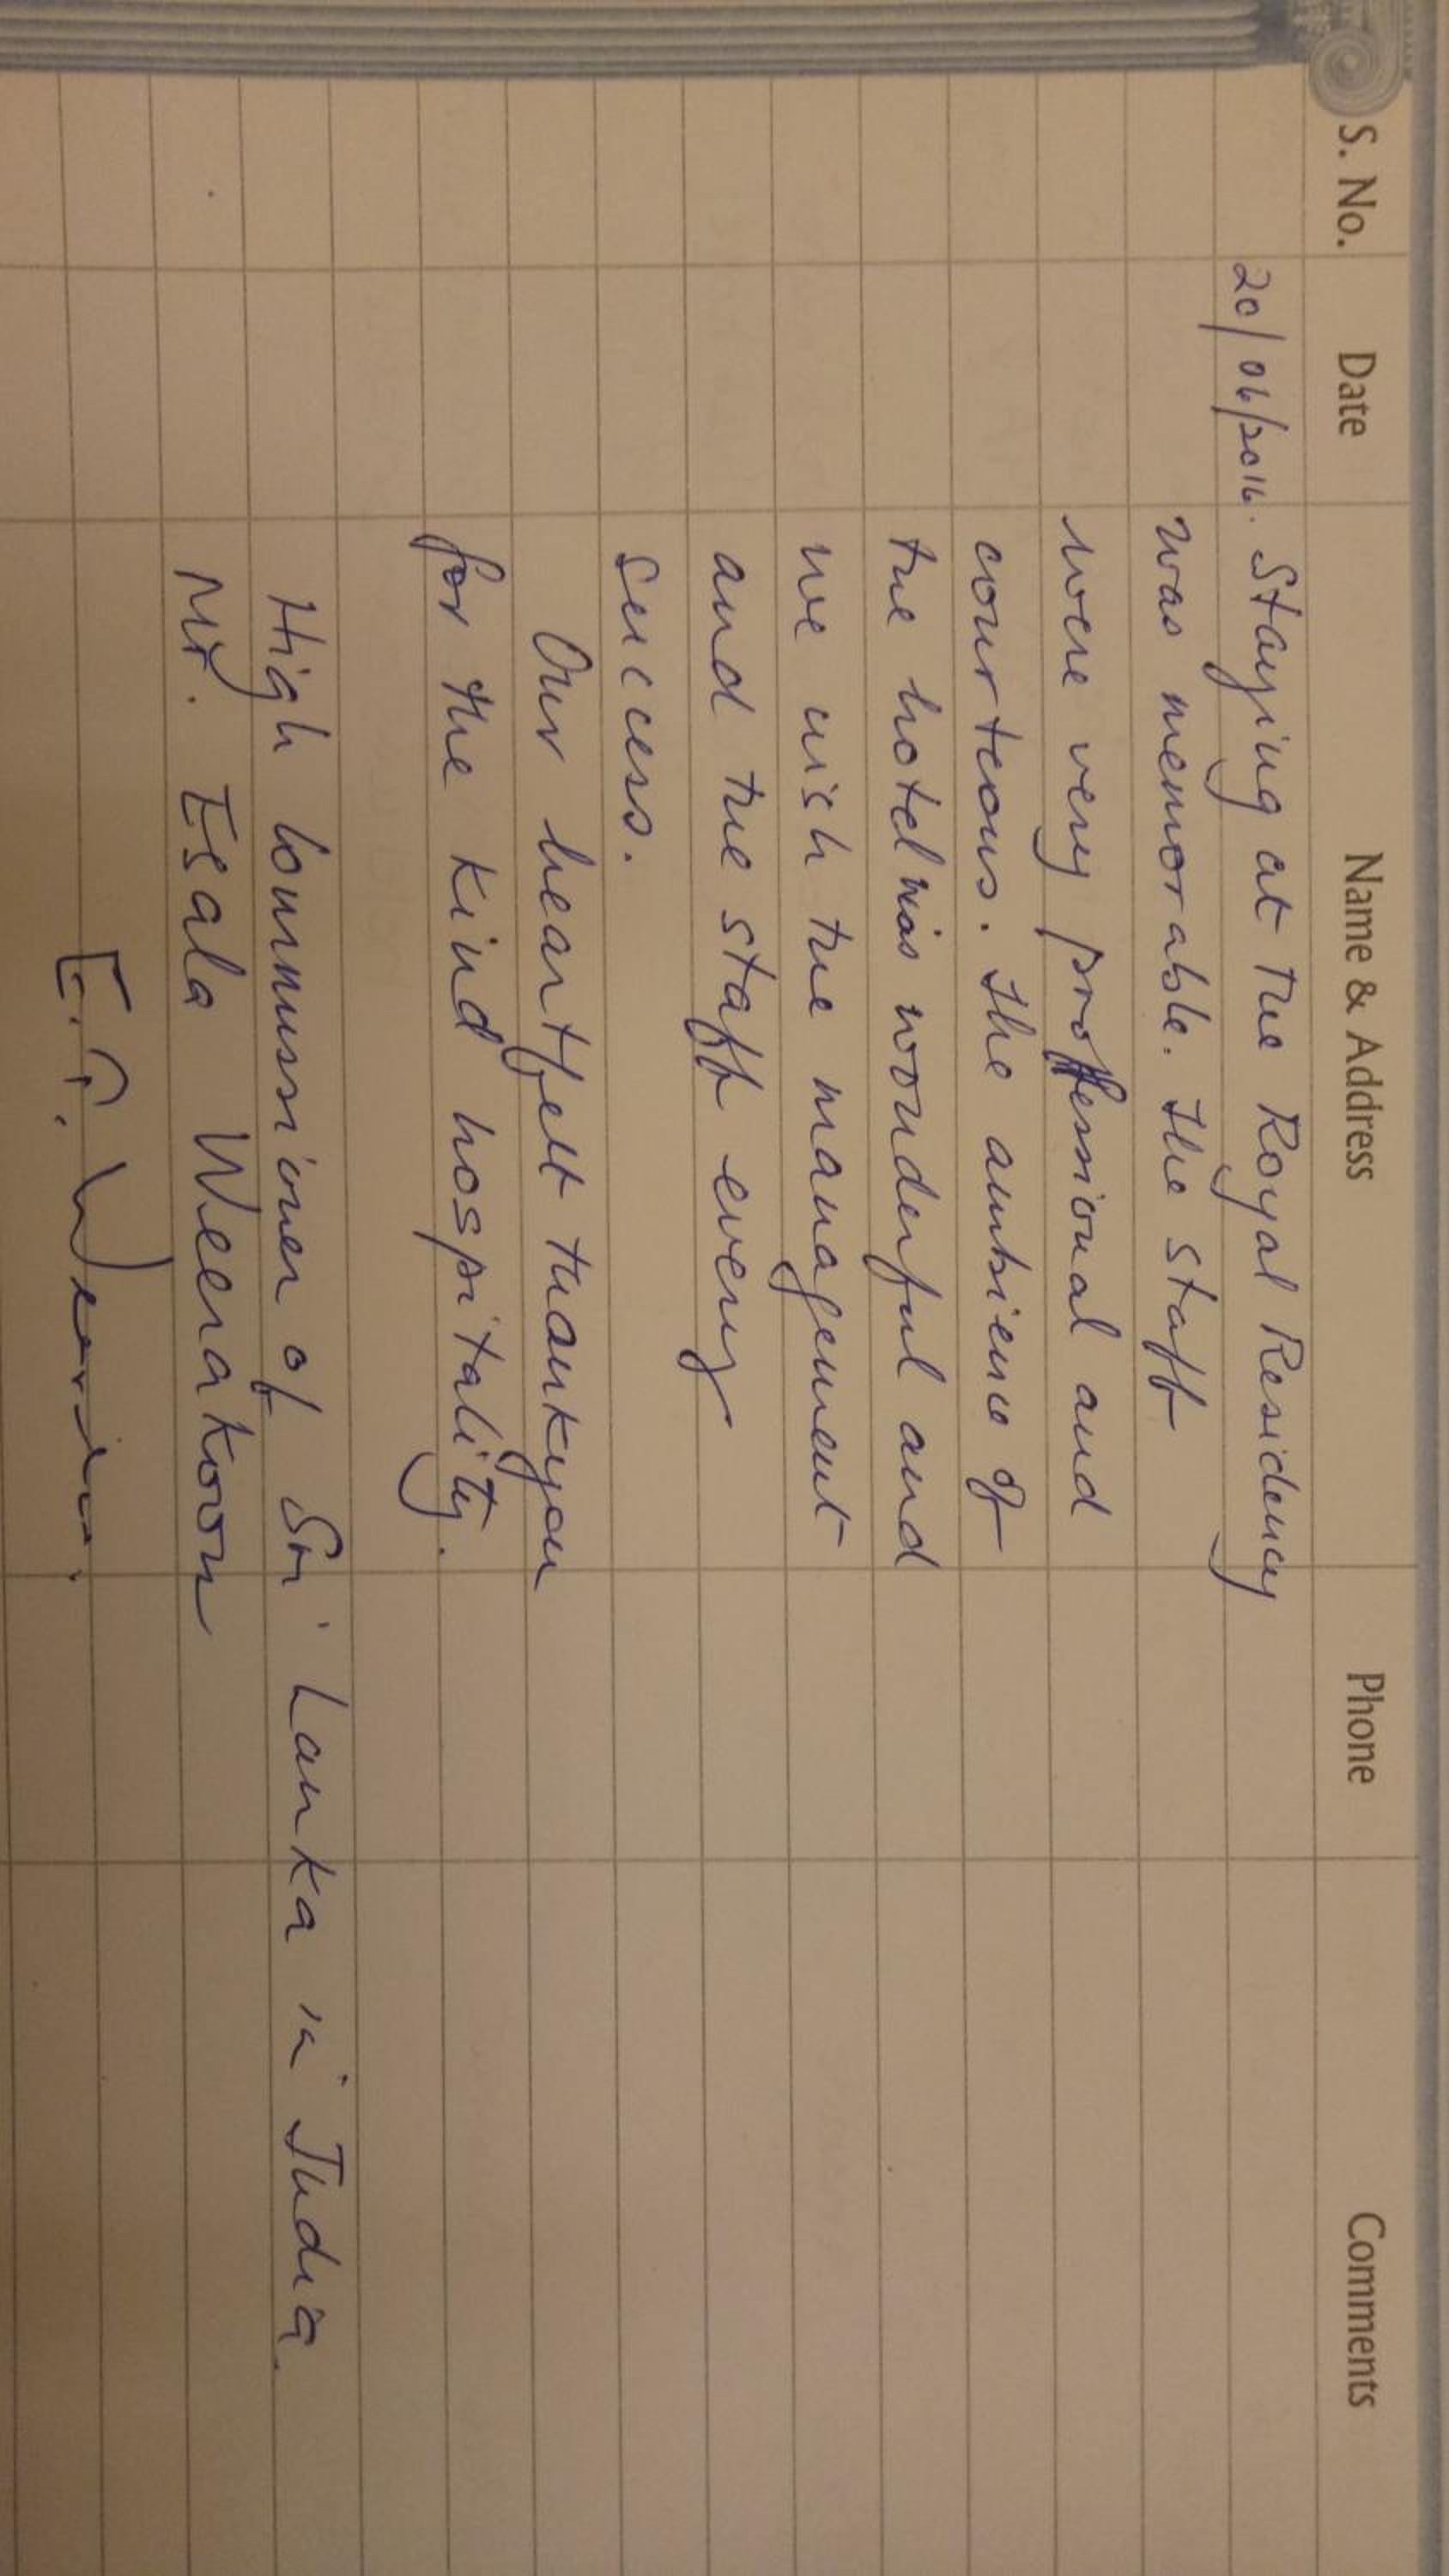 S. No. Date Name & Address Phone Comments
20/06/2016. Staying at the Royal Residency
was memorable. The staff
were very professional and
courteous. The ambience of
the hotel was wonderful and
we wish the management
and the staff every
success.
Our heartfelt thankyou
for the kind hospitality.
High Commissioner of Sri Lanka in India.
Mr. Esala Weerakoon